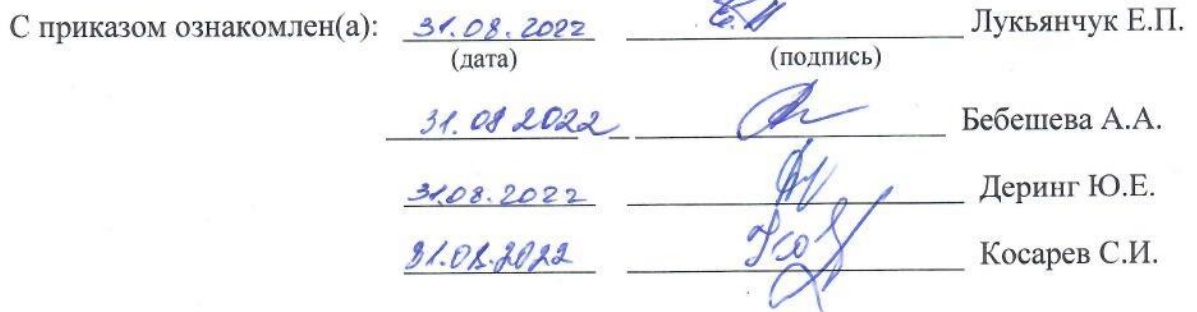 С приказом ознакомлен(а): 31.08.2022 Лукьянчук Е.П.
(дата) (подпись)
31.08 2022 Бебешева А.А.
31.08.2022 Деринг Ю.Е.
31.08.2022 Косарев С.И.